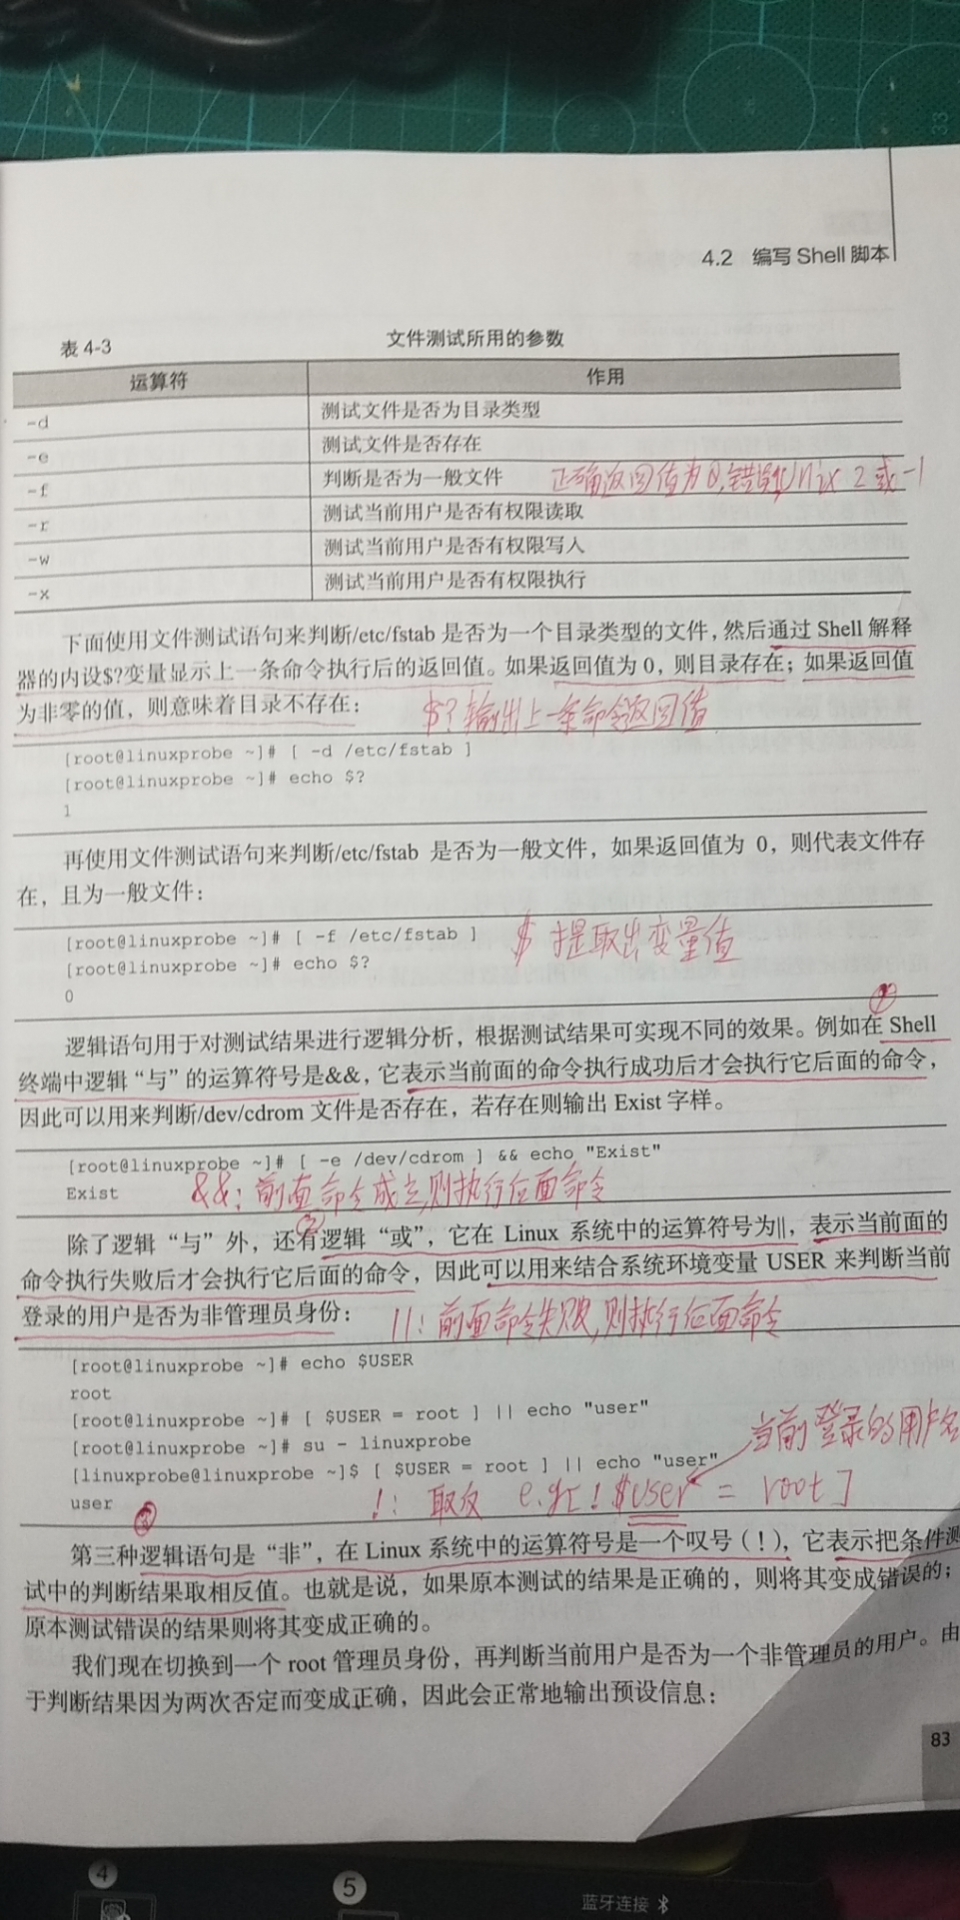 33
4.2 编写 Shell 脚本
表 4-3 文件测试所用的参数
运算符 作用
-d 测试文件是否为目录类型
-e 测试文件是否存在
-f 判断是否为一般文件 正确返回值为0,错误 2 或 -1
-r 测试当前用户是否有权限读取
-w 测试当前用户是否有权限写入
-x 测试当前用户是否有权限执行
下面使用文件测试语句来判断/etc/fstab 是否为一个目录类型的文件，然后通过 Shell 解释
器的内设$?变量显示上一条命令执行后的返回值。如果返回值为 0，则目录存在；如果返回值
为非零的值，则意味着目录不存在：
$? 输出上一条命令返回值
[root@linuxprobe ~]# [ -d /etc/fstab ]
[root@linuxprobe ~]# echo $?
1
再使用文件测试语句来判断/etc/fstab 是否为一般文件，如果返回值为 0，则代表文件存
在，且为一般文件：
[root@linuxprobe ~]# [ -f /etc/fstab ]
$ 提取出变量值
[root@linuxprobe ~]# echo $?
0
①
逻辑语句用于对测试结果进行逻辑分析，根据测试结果可实现不同的效果。例如在 Shell
终端中逻辑“与”的运算符号是&&，它表示当前面的命令执行成功后才会执行它后面的命令，
因此可以用来判断/dev/cdrom 文件是否存在，若存在则输出 Exist 字样。
[root@linuxprobe ~]# [ -e /dev/cdrom ] && echo "Exist"
Exist
&&: 前面命令成立,则执行后面命令
②
除了逻辑“与”外，还有逻辑“或”，它在 Linux 系统中的运算符号为||，表示当前面的
命令执行失败后才会执行它后面的命令，因此可以用来结合系统环境变量 USER 来判断当前
登录的用户是否为非管理员身份：
||: 前面命令失败,则执行后面命令
[root@linuxprobe ~]# echo $USER
root
[root@linuxprobe ~]# [ $USER = root ] || echo "user"
[root@linuxprobe ~]# su - linuxprobe
当前登录的用户名
[linuxprobe@linuxprobe ~]$ [ $USER = root ] || echo "user"
user
!: 取反 e.g[ ! $user = root ]
③
第三种逻辑语句是“非”，在 Linux 系统中的运算符号是一个叹号（!），它表示把条件测
试中的判断结果取相反值。也就是说，如果原本测试的结果是正确的，则将其变成错误的；
原本测试错误的结果则将其变成正确的。
我们现在切换到一个 root 管理员身份，再判断当前用户是否为一个非管理员的用户。由
于判断结果因为两次否定而变成正确，因此会正常地输出预设信息：
83
4
5
蓝牙连接